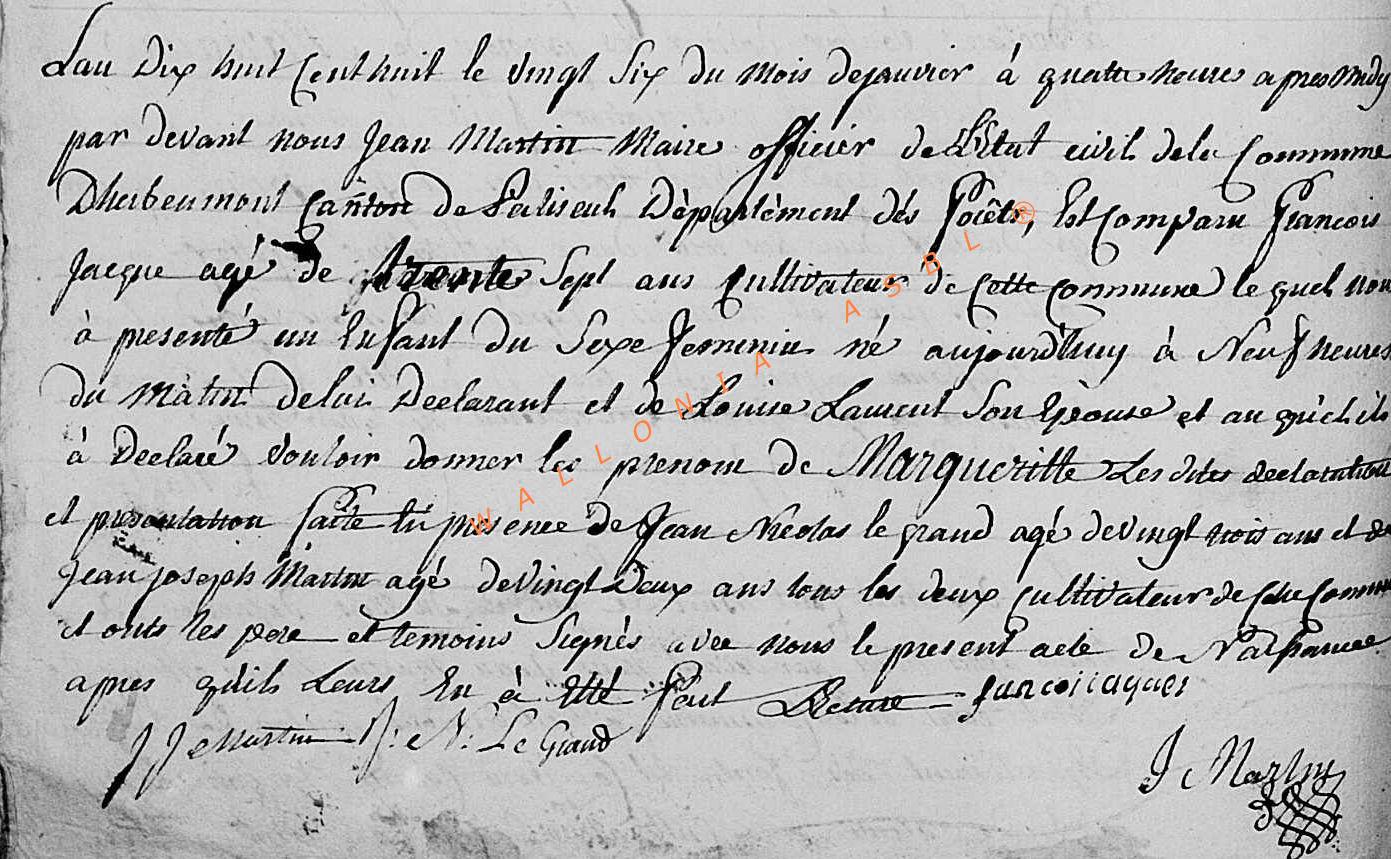 Lan Dix huit Cent huit le vingt Six du Mois de janvier à quatre heures apres Midy
par devant nous Jean Martin Maire officier de L'Etat civil dela Commune
Dherbeumont Canton de Paliseul Département dés Foiêts, Est Comparu François
Jacque agé de trente Sept ans Cultivateur de Cette Commune le quel nou
à presenté un Enfant du Sexe feminin né aujourdhuy à Neuf heures
du Matin delui Declarant et de Louise Laurent Son Epouse et au quel il
à Declaré vouloir donner les prenom de Margueritte Les dites declaration
et presentation faite En presence de Jean Nicolas le grand agé de vingt trois ans et de
Jean joseph Martin agé de vingt Deux ans tous les deux Cultivateur de Cette Commu
et onts les pere et temoins Signés avec nous le present acte de Naissance
apres quils Leurs En à Etté fait Lecture francoi iaques
J J Martin J: N: Le Grand
J Martin
WALLONIA ASBL ®